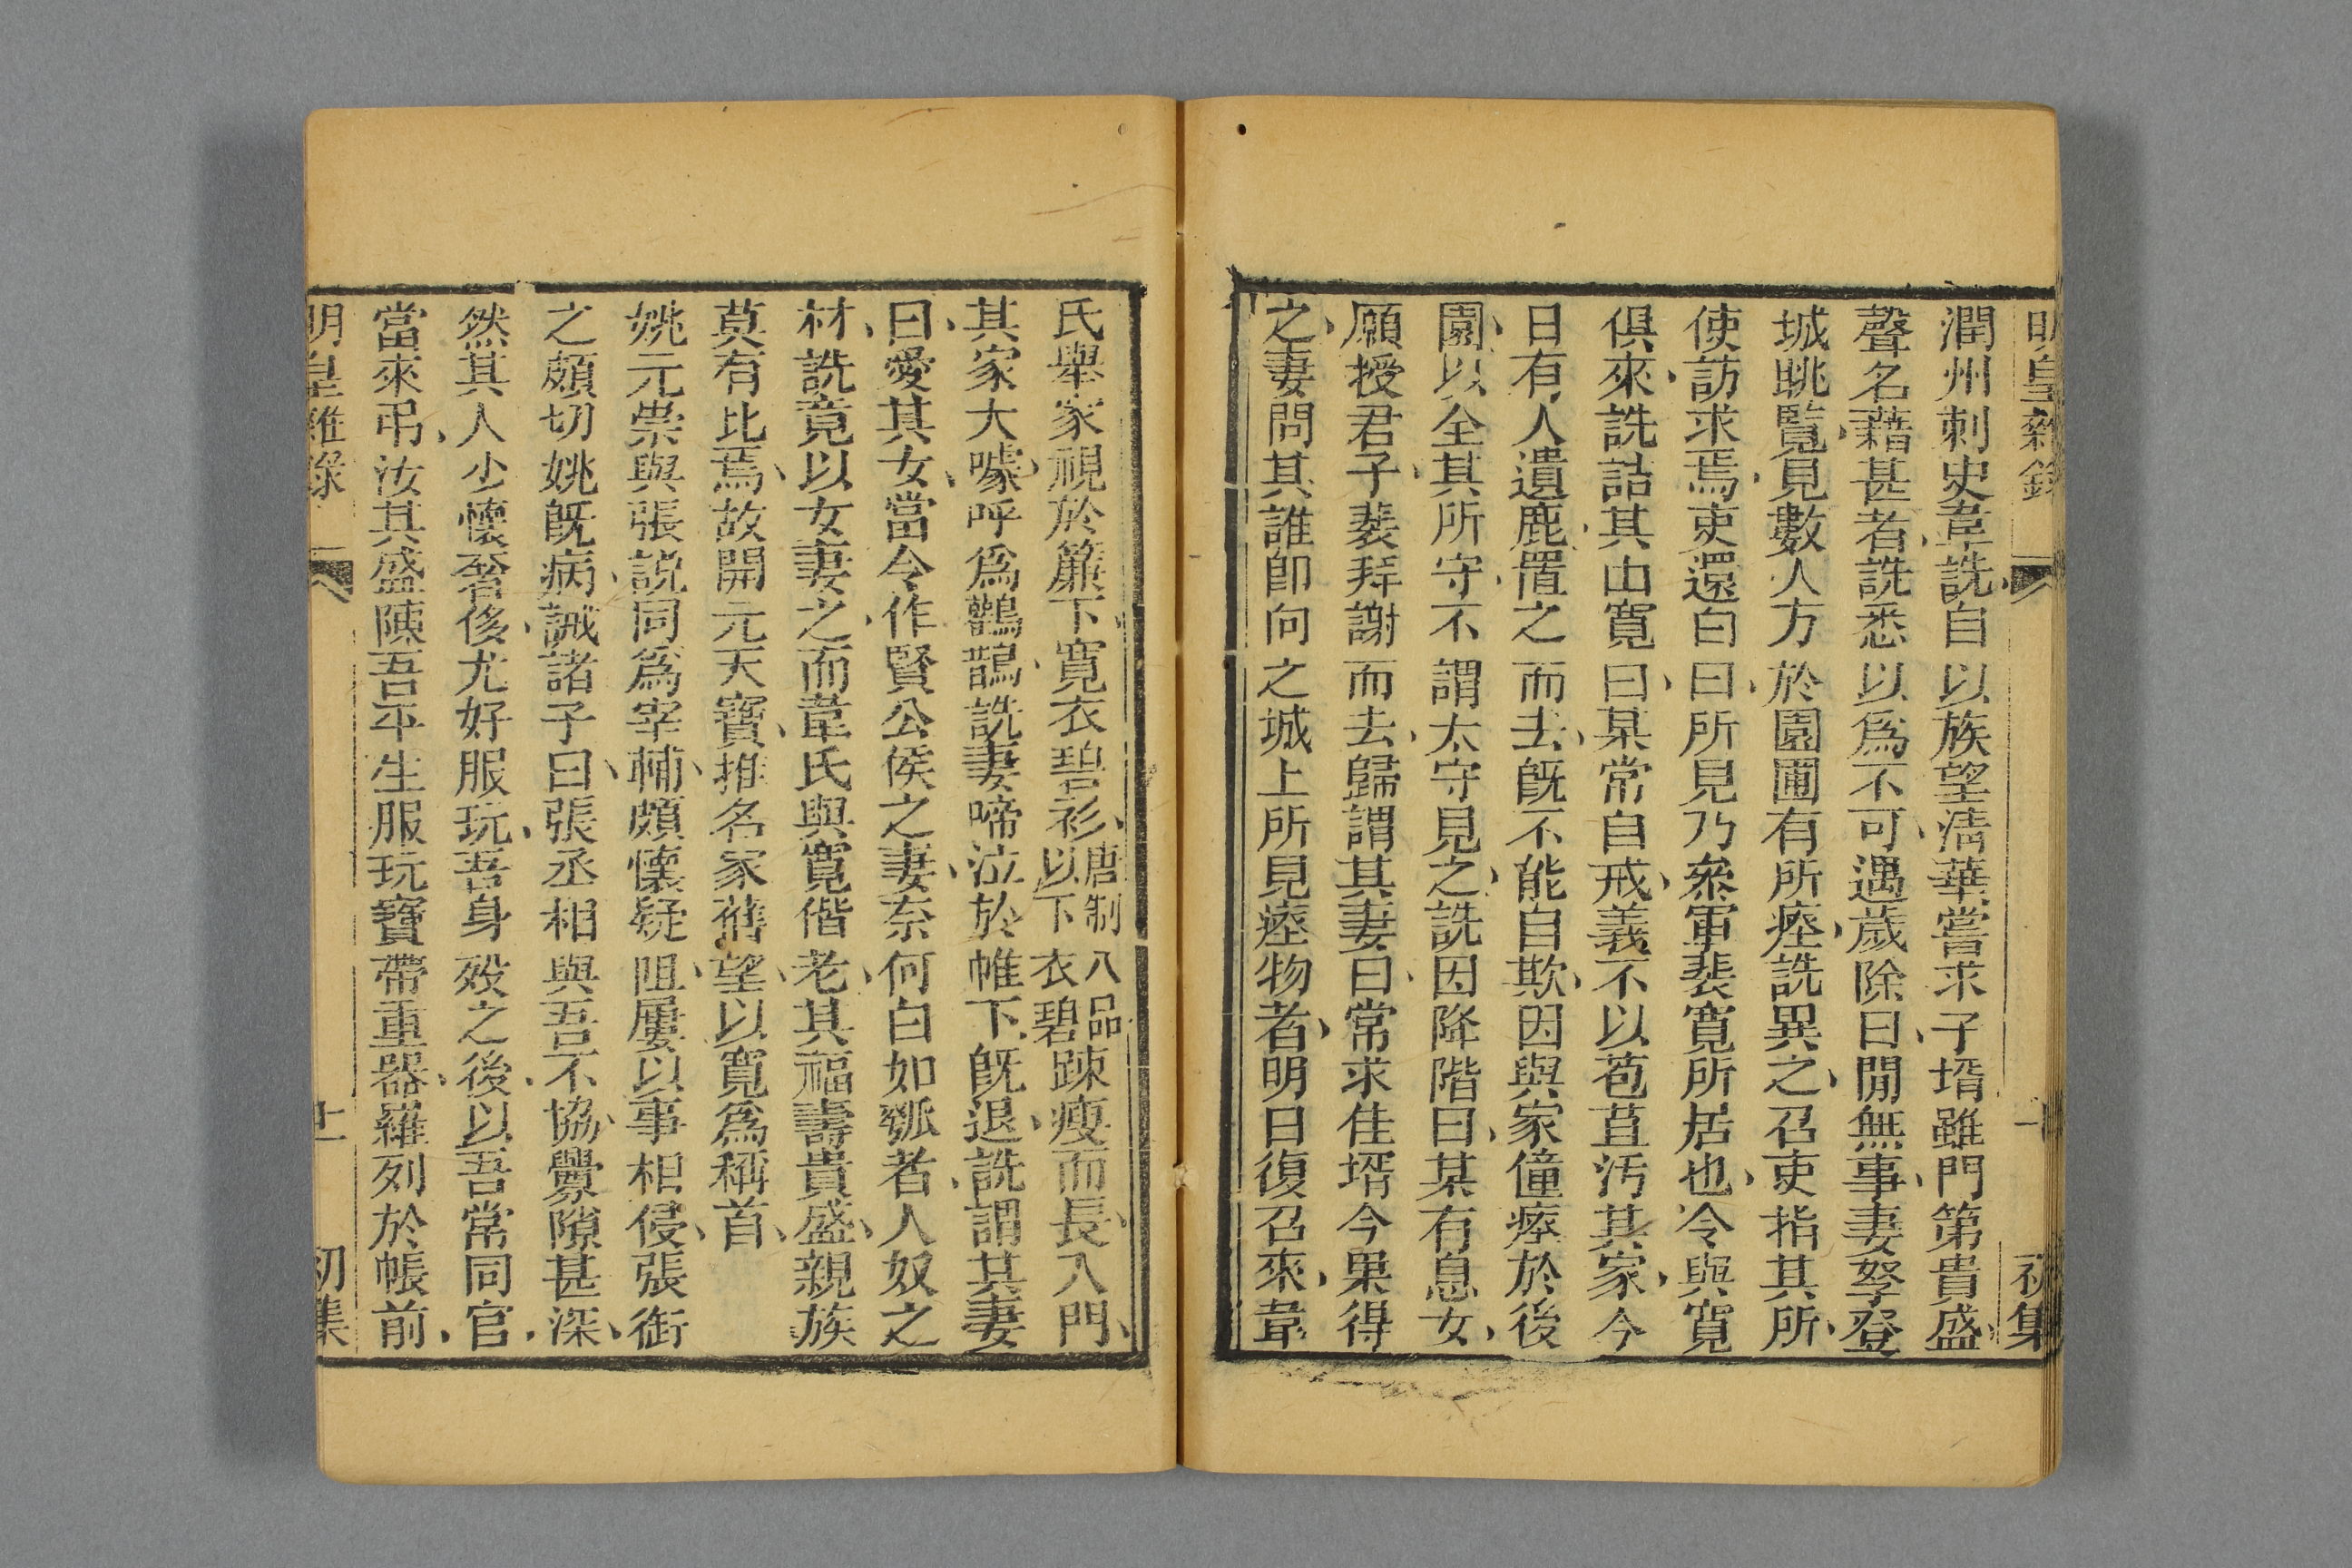 明皇雜錄 初集
潤州刺史韋詵自以族望淸華嘗求子壻雖門第貴盛
聲名藉甚者詵悉以爲不可遇歲除日閒無事妻孥登
城眺覽見數人方於園圃有所瘞詵異之召吏指其所
使訪求焉吏還白曰所見乃叅軍裴寬所居也令與寬
俱來詵詰其由寬曰某常自戒義不以苞苴汚其家今
日有人遺鹿置之而去旣不能自欺因與家僮瘞於後
園以全其所守不謂太守見之詵因降階曰某有息女
願授君子裴拜謝而去歸謂其妻曰常求佳壻今果得
之妻問其誰卽向之城上所見瘞物者明日復召來韋
氏舉家視於簾下寬衣碧衫唐制八品以下衣碧踈瘦而長入門
其家大噱呼爲鸛鵲詵妻啼泣於帷下旣退詵謂其妻
曰愛其女當令作賢公侯之妻柰何白如瓠者人奴之
材詵竟以女妻之而韋氏與寬偕老其福壽貴盛親族
莫有比焉故開元天寶推名家舊望以寬爲稱首
姚元崇與張説同爲宰輔頗懷疑阻屢以事相侵張銜
之頗切姚旣病誡諸子曰張丞相與吾不協釁隙甚深
然其人少懷奢侈尤好服玩吾身歿之後以吾常同官
當來弔汝其盛陳吾平生服玩寶帶重器羅列於帳前
明皇雜錄 十 初集